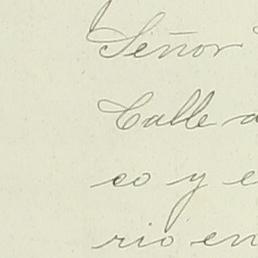 Señor
Calle a
co y e
rio en